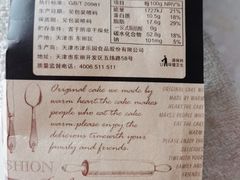 执行标准：GB/T 20981
生产日期：见包装喷码
保质期：见包装喷码
贮存条件：置于阴凉干燥处
产地：天津市东丽区
生产商：天津市津乐园食品股份有限公司
地址：天津市东丽开发区五纬路58号
质量监督电话：4006 511 511
每100g NRV%
能量 1722kJ 21%
蛋白质 10.5g 18%
脂肪 17.9g 30%
碳水化合物 52.8g 18%
钠 101mg 5%
Original cake we made by
warm heart.the cake makes
people who eat the cake
warm.....please enjoy the
delicious timewith your
family and friends.
SHION
ORIGINAL CAKE WE
MADE BY WARM
HEART.THE CAKE
MAKES PEOPLE
WHO EAT THE CAKE
WARM.....PLEASE
ENJOY THE
DELICIOUS
TIMEWITH YOUR
FAMILY AND
FRIENDS.